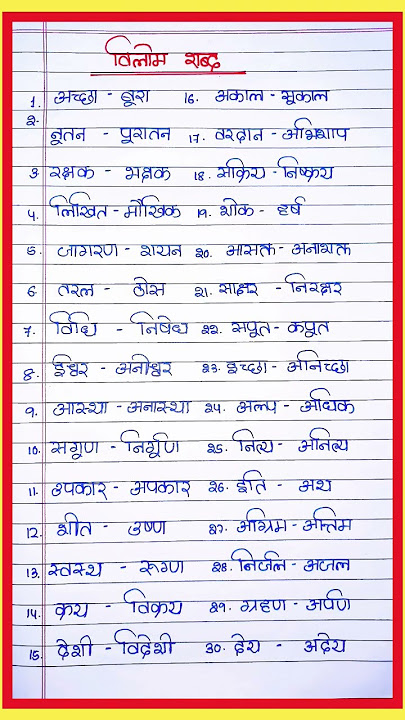 विलोम शब्द
1. अच्छा - बूरा 16. अकाल - सूकाल
2. नूतन - पुरातन 17. वरदान - अभिशाप
3. रक्षक - भक्षक 18. सक्रिय - निष्क्रय
4. लिखित - मौखिक 19. शोक - हर्ष
5. जागरण - शयन 20. आसक्त - अनाशक्त
6. तरल - ठोस 21. साक्षर - निरक्षर
7. विधि - निषेध 22. सपूत - कपूत
8. ईश्वर - अनीश्वर 23. इच्छा - अनिच्छा
9. आस्था - अनास्था 24. अल्प - अधिक
10. सगुण - निर्गुण 25. नित्य - अनित्य
11. उपकार - अपकार 26. इति - अथ
12. शीत - उष्ण 27. अग्रिम - अन्तिम
13. स्वस्थ - रुग्ण 28. निर्जल - अजल
14. क्रय - विक्रय 29. ग्रहण - अर्पण
15. देशी - विदेशी 30. देय - अदेय